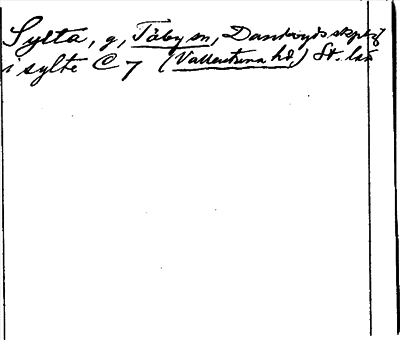 Sylta, g, Täby sn, Danderyds skplg
i sylte C 7 (Vallentuna hd,) St. län